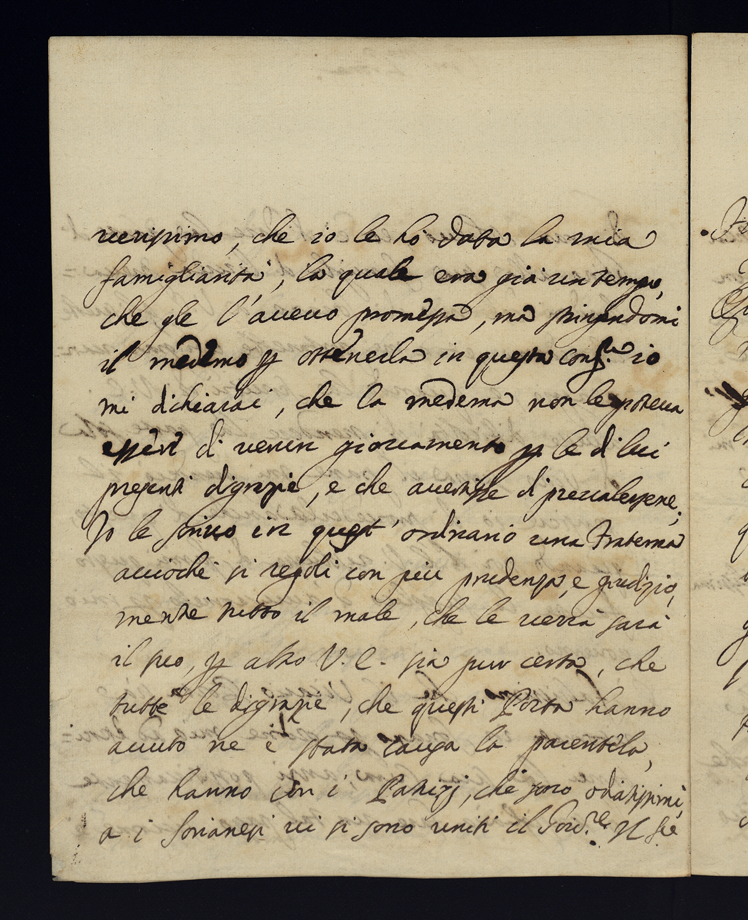 verissimo, che io le hò data la mia
famigliarità, la quale era già un tempo,
che gle l'avevo promessa, ma
il medemo p ottenerla in questa io
mi dichiarai, che la medema non le poteva
essere di verun giovamento p le di lui
presenti disgrazie, e che di prevalersene;
Io le scrivo in quest' ordinario una fraterna
acciochè si regoli con più prudenza, e giudizio,
mentre tutto il male, che le verrà sarà
il suo, p altro V. E. sia pur certa, che
tutte le disgrazie, che questi Porta hanno
avuto ne è stata causa la parentela,
che hanno con i , che sono odiatissimi,
a i Sorianesi vi si sono uniti il